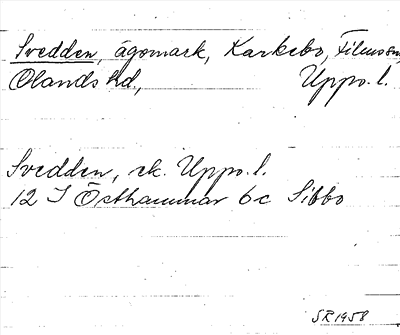 Svedden, ägomark, Karkebo, Films sn,
Olands hd, Upps. l.
Svedden, ek. Upps. l.
12 I Östhammar 6c Sibbo
SR 1958